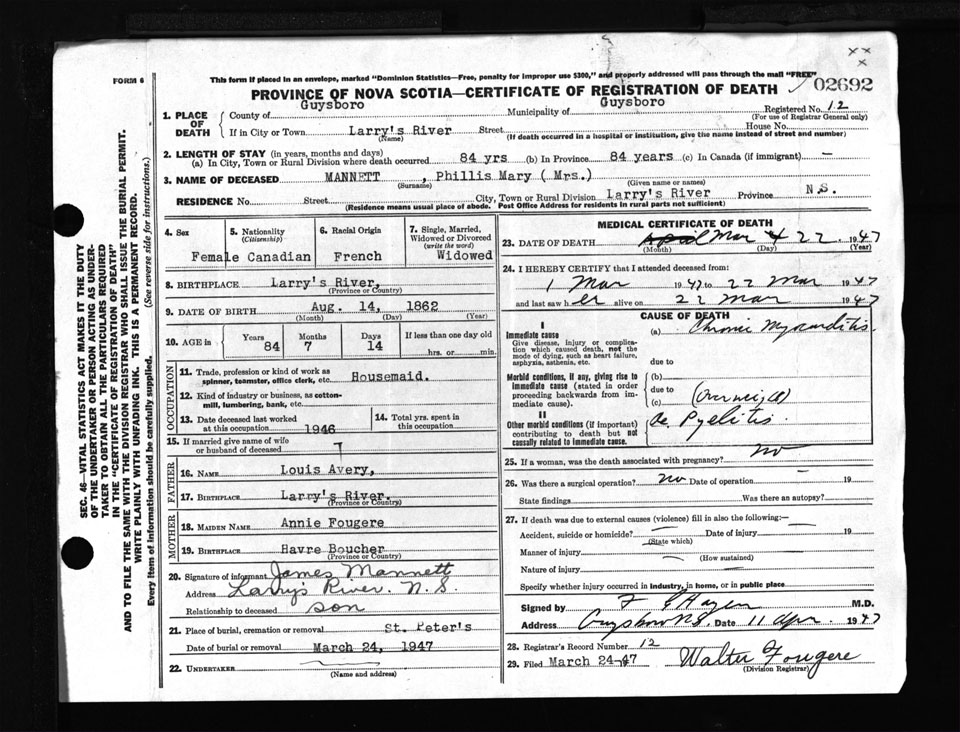 FORM 6
This form if placed in an envelope, marked "Dominion Statistics—Free, penalty for improper use $300," and properly addressed will pass through the mail "FREE"
02692
PROVINCE OF NOVA SCOTIA—CERTIFICATE OF REGISTRATION OF DEATH
1. PLACE OF DEATH
County of Guysboro Municipality of Guysboro Registered No. 12
(For use of Registrar General only)
If in City or Town Larry's River Street House No.
(Name) (If death occurred in a hospital or institution, give the name instead of street and number)
2. LENGTH OF STAY (in years, months and days)
(a) In City, Town or Rural Division where death occurred 84 yrs (b) In Province 84 years (c) In Canada (if immigrant) —
3. NAME OF DECEASED MANNETT , Phillis Mary ( Mrs.)
(Surname) (Given name or names)
RESIDENCE No. Street City, Town or Rural Division Larry's River Province N.S.
(Residence means usual place of abode. Post Office Address for residents in rural parts not sufficient)
4. Sex Female
5. Nationality (Citizenship) Canadian
6. Racial Origin French
7. Single, Married, Widowed or Divorced (write the word) Widowed
8. BIRTHPLACE Larry's River,
(Province or Country)
9. DATE OF BIRTH Aug. 14, 1862
(Month) (Day) (Year)
10. AGE in Years 84 Months 7 Days 14 If less than one day old hrs. or min.
OCCUPATION
11. Trade, profession or kind of work as spinner, teamster, office clerk, etc. Housemaid.
12. Kind of industry or business, as cotton-mill, lumbering, bank, etc.
13. Date deceased last worked at this occupation 1946
14. Total yrs. spent in this occupation
15. If married give name of wife or husband of deceased
FATHER
16. NAME Louis Avery,
17. BIRTHPLACE Larry's River.
(Province or Country)
MOTHER
18. MAIDEN NAME Annie Fougere
19. BIRTHPLACE Havre Boucher
(Province or Country)
20. Signature of informant James Mannett
Address Larry's River. N.S.
Relationship to deceased son
21. Place of burial, cremation or removal St. Peter's
Date of burial or removal March 24, 1947
22. UNDERTAKER
(Name and address)
MEDICAL CERTIFICATE OF DEATH
23. DATE OF DEATH April Mar 22 1947
(Month) (Day) (Year)
24. I HEREBY CERTIFY that I attended deceased from:
1 Mar 1947 to 22 Mar 1947
and last saw h er alive on 22 Mar 1947
CAUSE OF DEATH
I
Immediate cause (a) Chronic Myocarditis.
Give disease, injury or complication which caused death, not the mode of dying, such as heart failure, asphyxia, asthenia, etc.
due to
Morbid conditions, if any, giving rise to immediate cause (stated in order proceeding backwards from immediate cause).
(b)
due to
(c) (Overweight)
II
Other morbid conditions (if important) contributing to death but not causally related to immediate cause.
Pyelitis.
25. If a woman, was the death associated with pregnancy? no
26. Was there a surgical operation? no Date of operation — 19
State findings Was there an autopsy?
27. If death was due to external causes (violence) fill in also the following:—
Accident, suicide or homicide? — Date of injury — 19
(State which)
Manner of injury —
(How sustained)
Nature of injury —
Specify whether injury occurred in industry, in home, or in public place
Signed by M.D.
Address Guysboro N.S. Date 11 Apr. 1947
28. Registrar's Record Number 12
29. Filed March 24-47 Walter Fougere
(Division Registrar)
SEC. 46—VITAL STATISTICS ACT MAKES IT THE DUTY
OF THE UNDERTAKER OR PERSON ACTING AS UNDER-
TAKER TO OBTAIN ALL THE PARTICULARS REQUIRED
IN THE "CERTIFICATE OF REGISTRATION OF DEATH"
AND TO FILE THE SAME WITH THE DIVISION REGISTRAR WHO SHALL ISSUE THE BURIAL PERMIT.
WRITE PLAINLY WITH UNFADING INK. THIS IS A PERMANENT RECORD.
Every item of information should be carefully supplied. (See reverse side for instructions.)